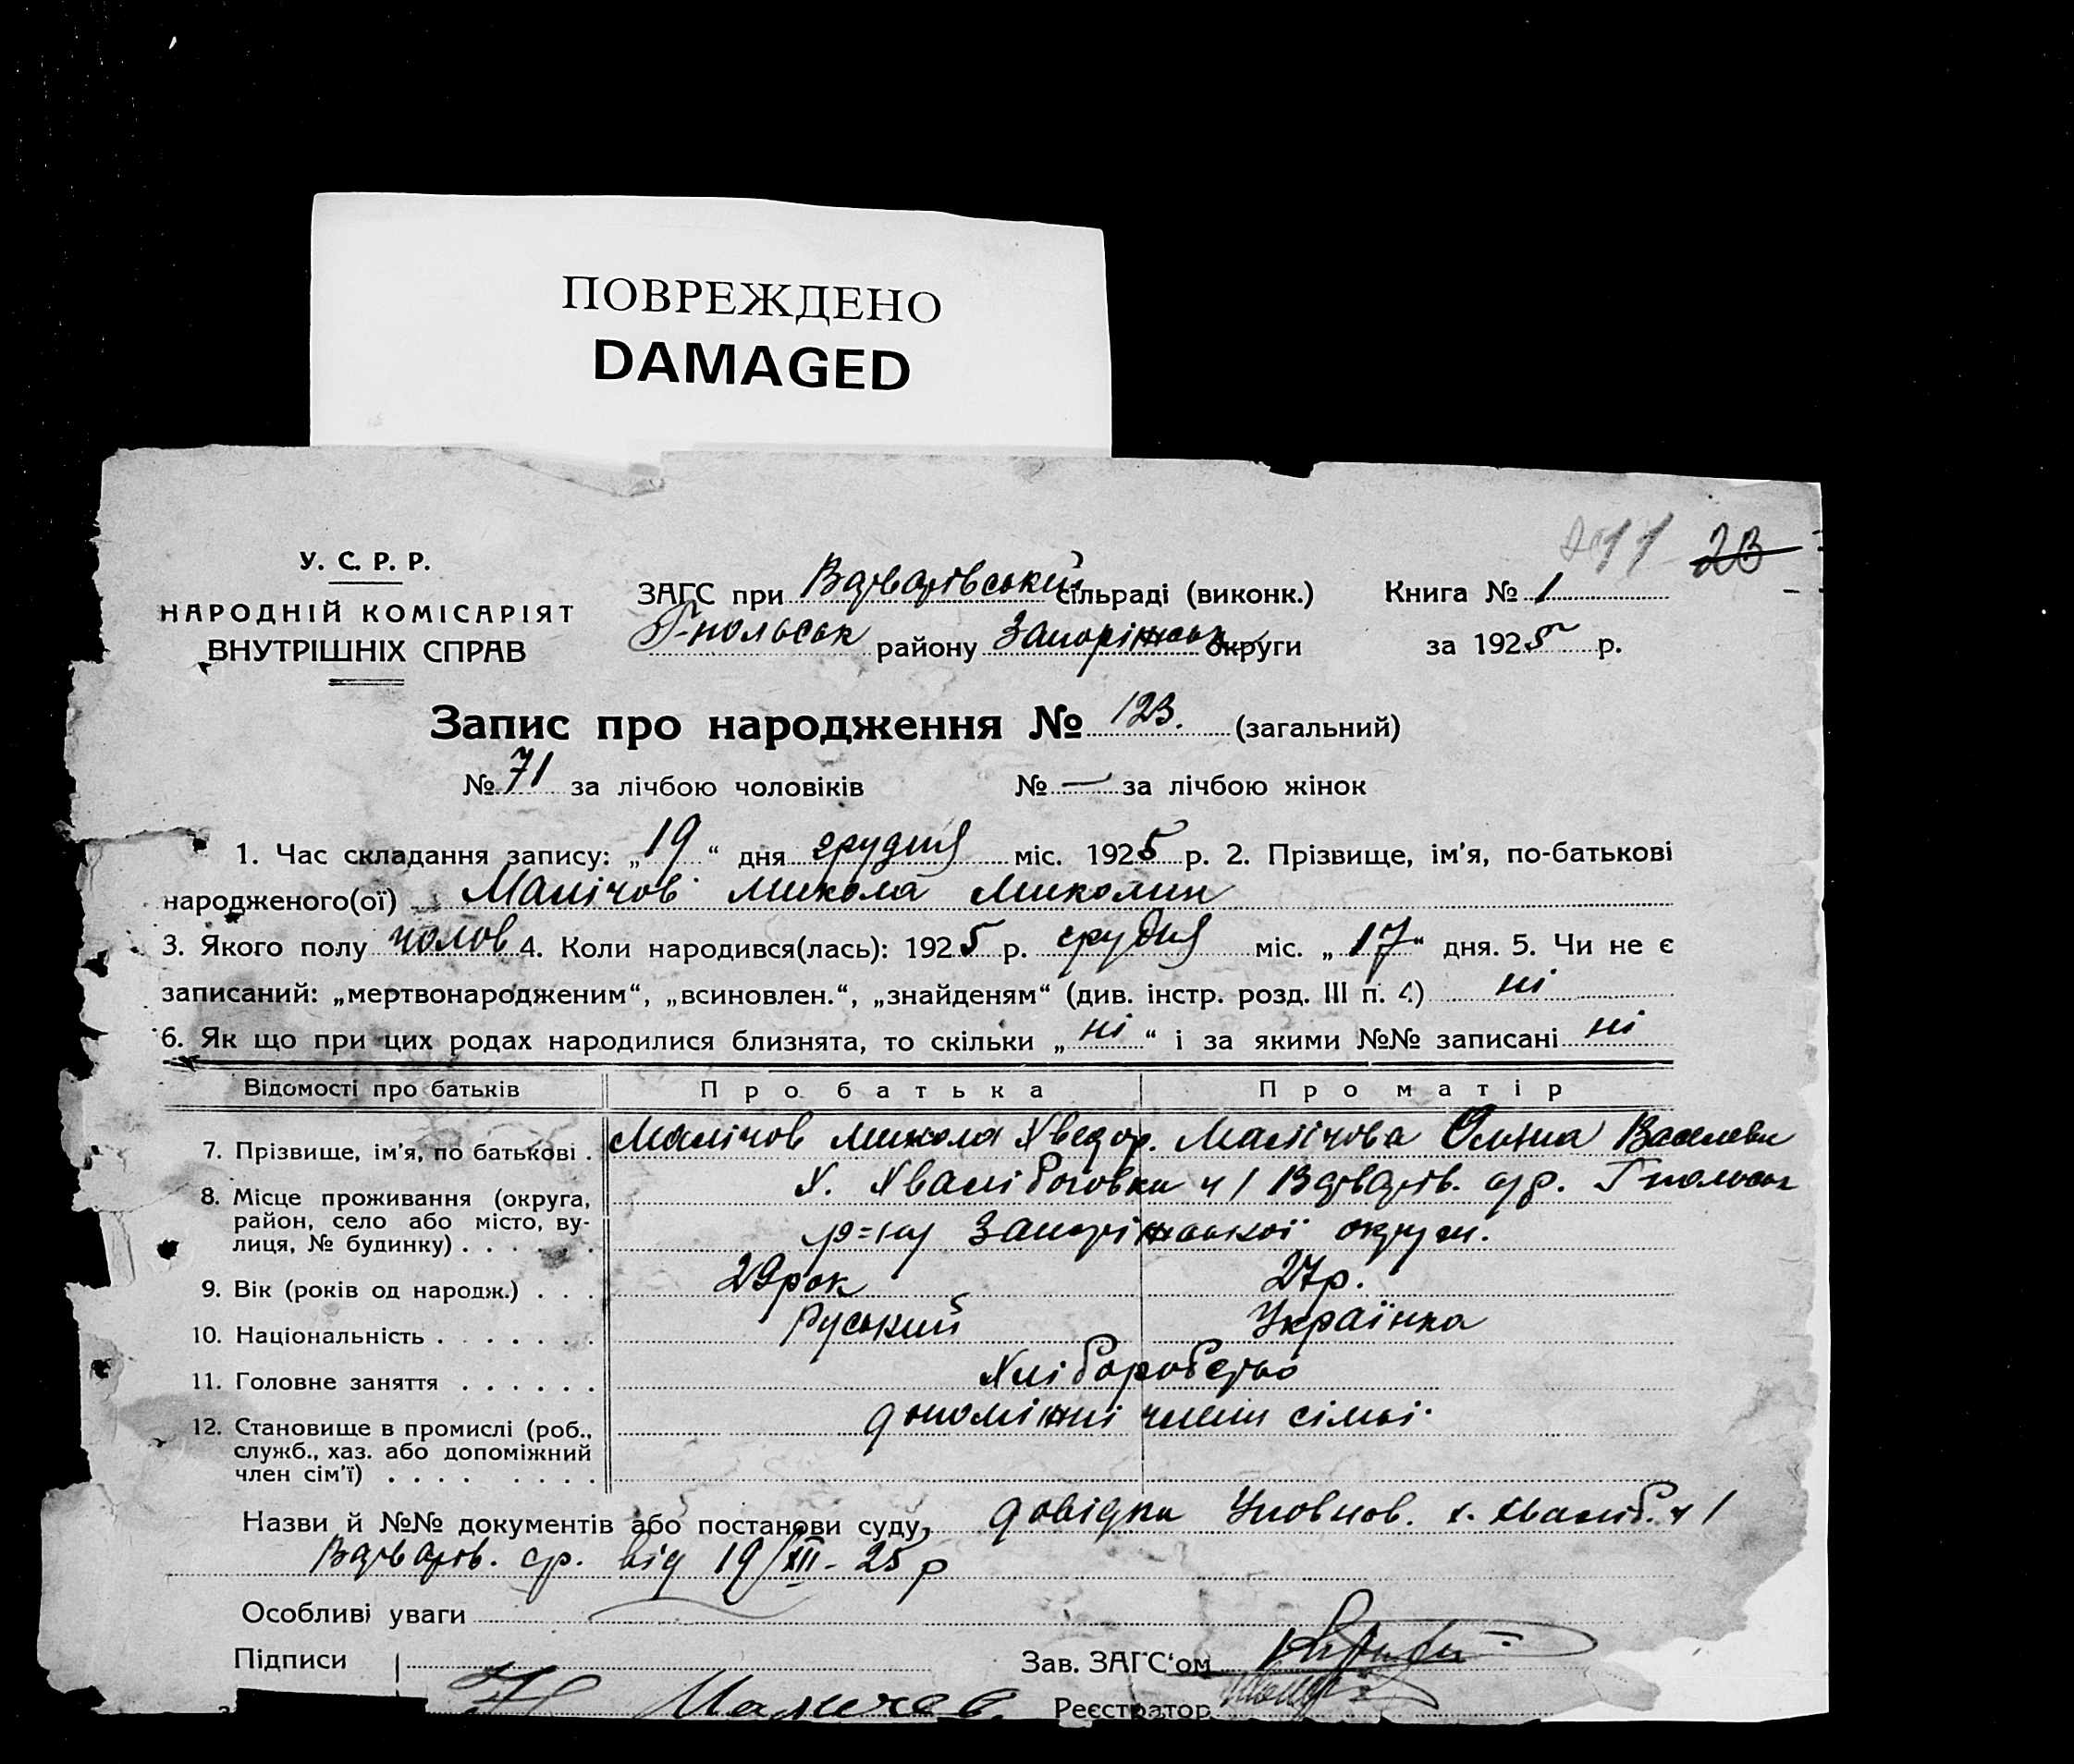 ПОВРЕЖДЕНО
DAMAGED
23
У. С. Р. Р.
НАРОДНІЙ КОМІСАРІЯТ
ВНУТРІШНІХ СПРАВ
ЗАГС при Варварівський сільраді (виконк.) Книга № 1
Г-польськ району Запоріжськ округи за 1925 р.
Запис про народження № 123. (загальний)
№ 71 за лічбою чоловіків № — за лічбою жінок
1. Час складання запису: „19“ дня грудня міс. 1925 р. 2. Прізвище, ім'я, по-батькові
народженого(ої) Малічов Микола Миколин
3. Якого полу чолов 4. Коли народився(лась): 1925 р. грудня міс. „17“ дня. 5. Чи не є
записаний: „мертвонародженим“, „всиновлен.“, „знайденям“ (див. інстр. розд. III п. 4) ні
6. Як що при цих родах народилися близнята, то скільки „ні“ і за якими №№ записані ні
Відомості про батьків Про батька Про матір
7. Прізвище, ім'я, по батькові . Малічов Микола Хведор. Малічова Олена Василеви
8. Місце проживання (округа, район, село або місто, вулиця, № будинку) . . . . . . Х. Хвалібоговка ч 1 Варварів. с/р. Гполоськ
р=ну Запоріжської округи.
9. Вік (років од народж.) . . . 29 рок 27 р.
10. Національність . . . . . . . Руський Українка
11. Головне заняття . . . . . . Хліборобство
12. Становище в промислі (роб., служб., хаз. або допоміжний член сім'ї) . . . . . . . . допоміжні члени сімьі.
Назви й №№ документів або постанови суду, довідка Уповнов. х. Хваліб. ч 1
Варварів. с/р. від 19/XII - 25 р
Особливі уваги
Підписи Зав. ЗАГС'ом
Маличев Реєстратор